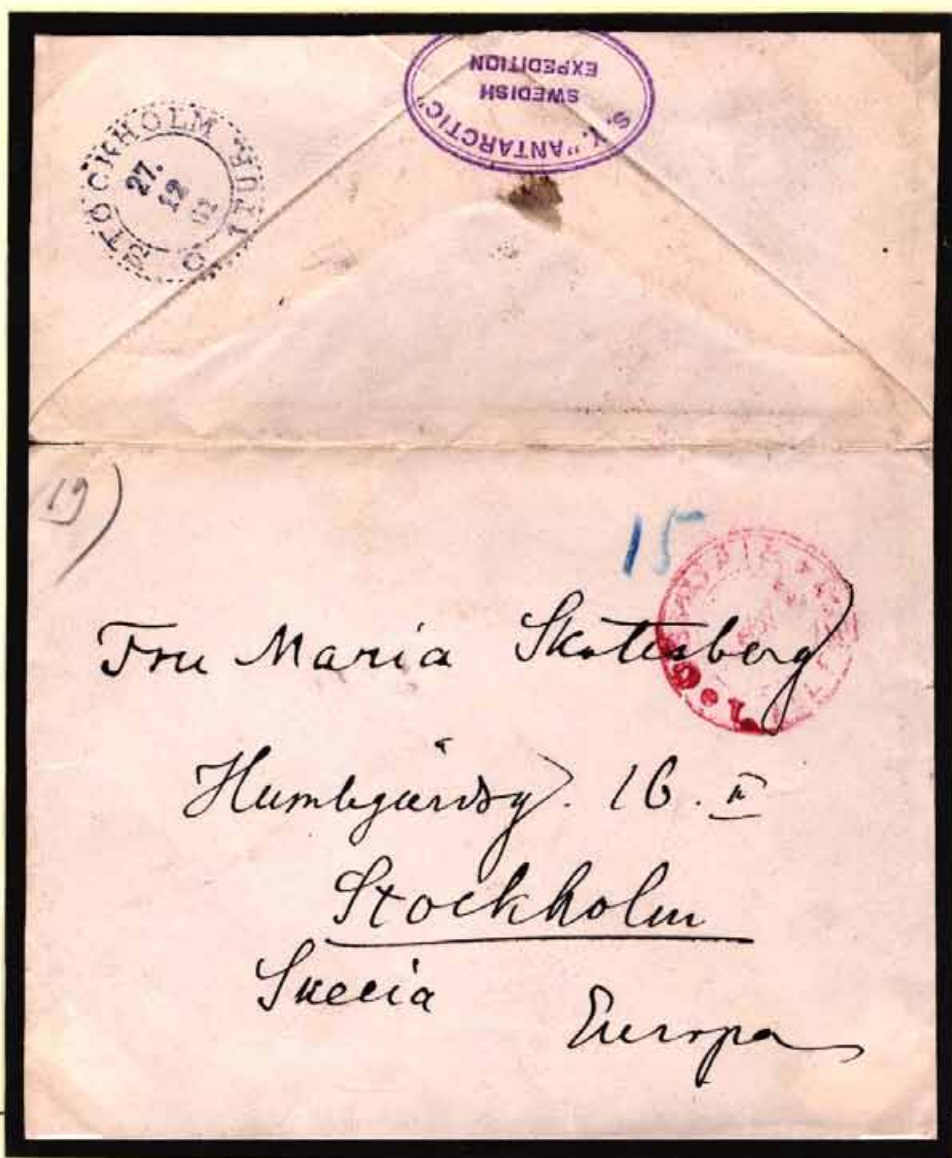 S. Y. "ANTARCTIC"
SWEDISH
EXPEDITION
STOCKHOLM
27.
12
02
15
Fru Maria Skottsberg
16. II
Stockholm
Suecia
Europa